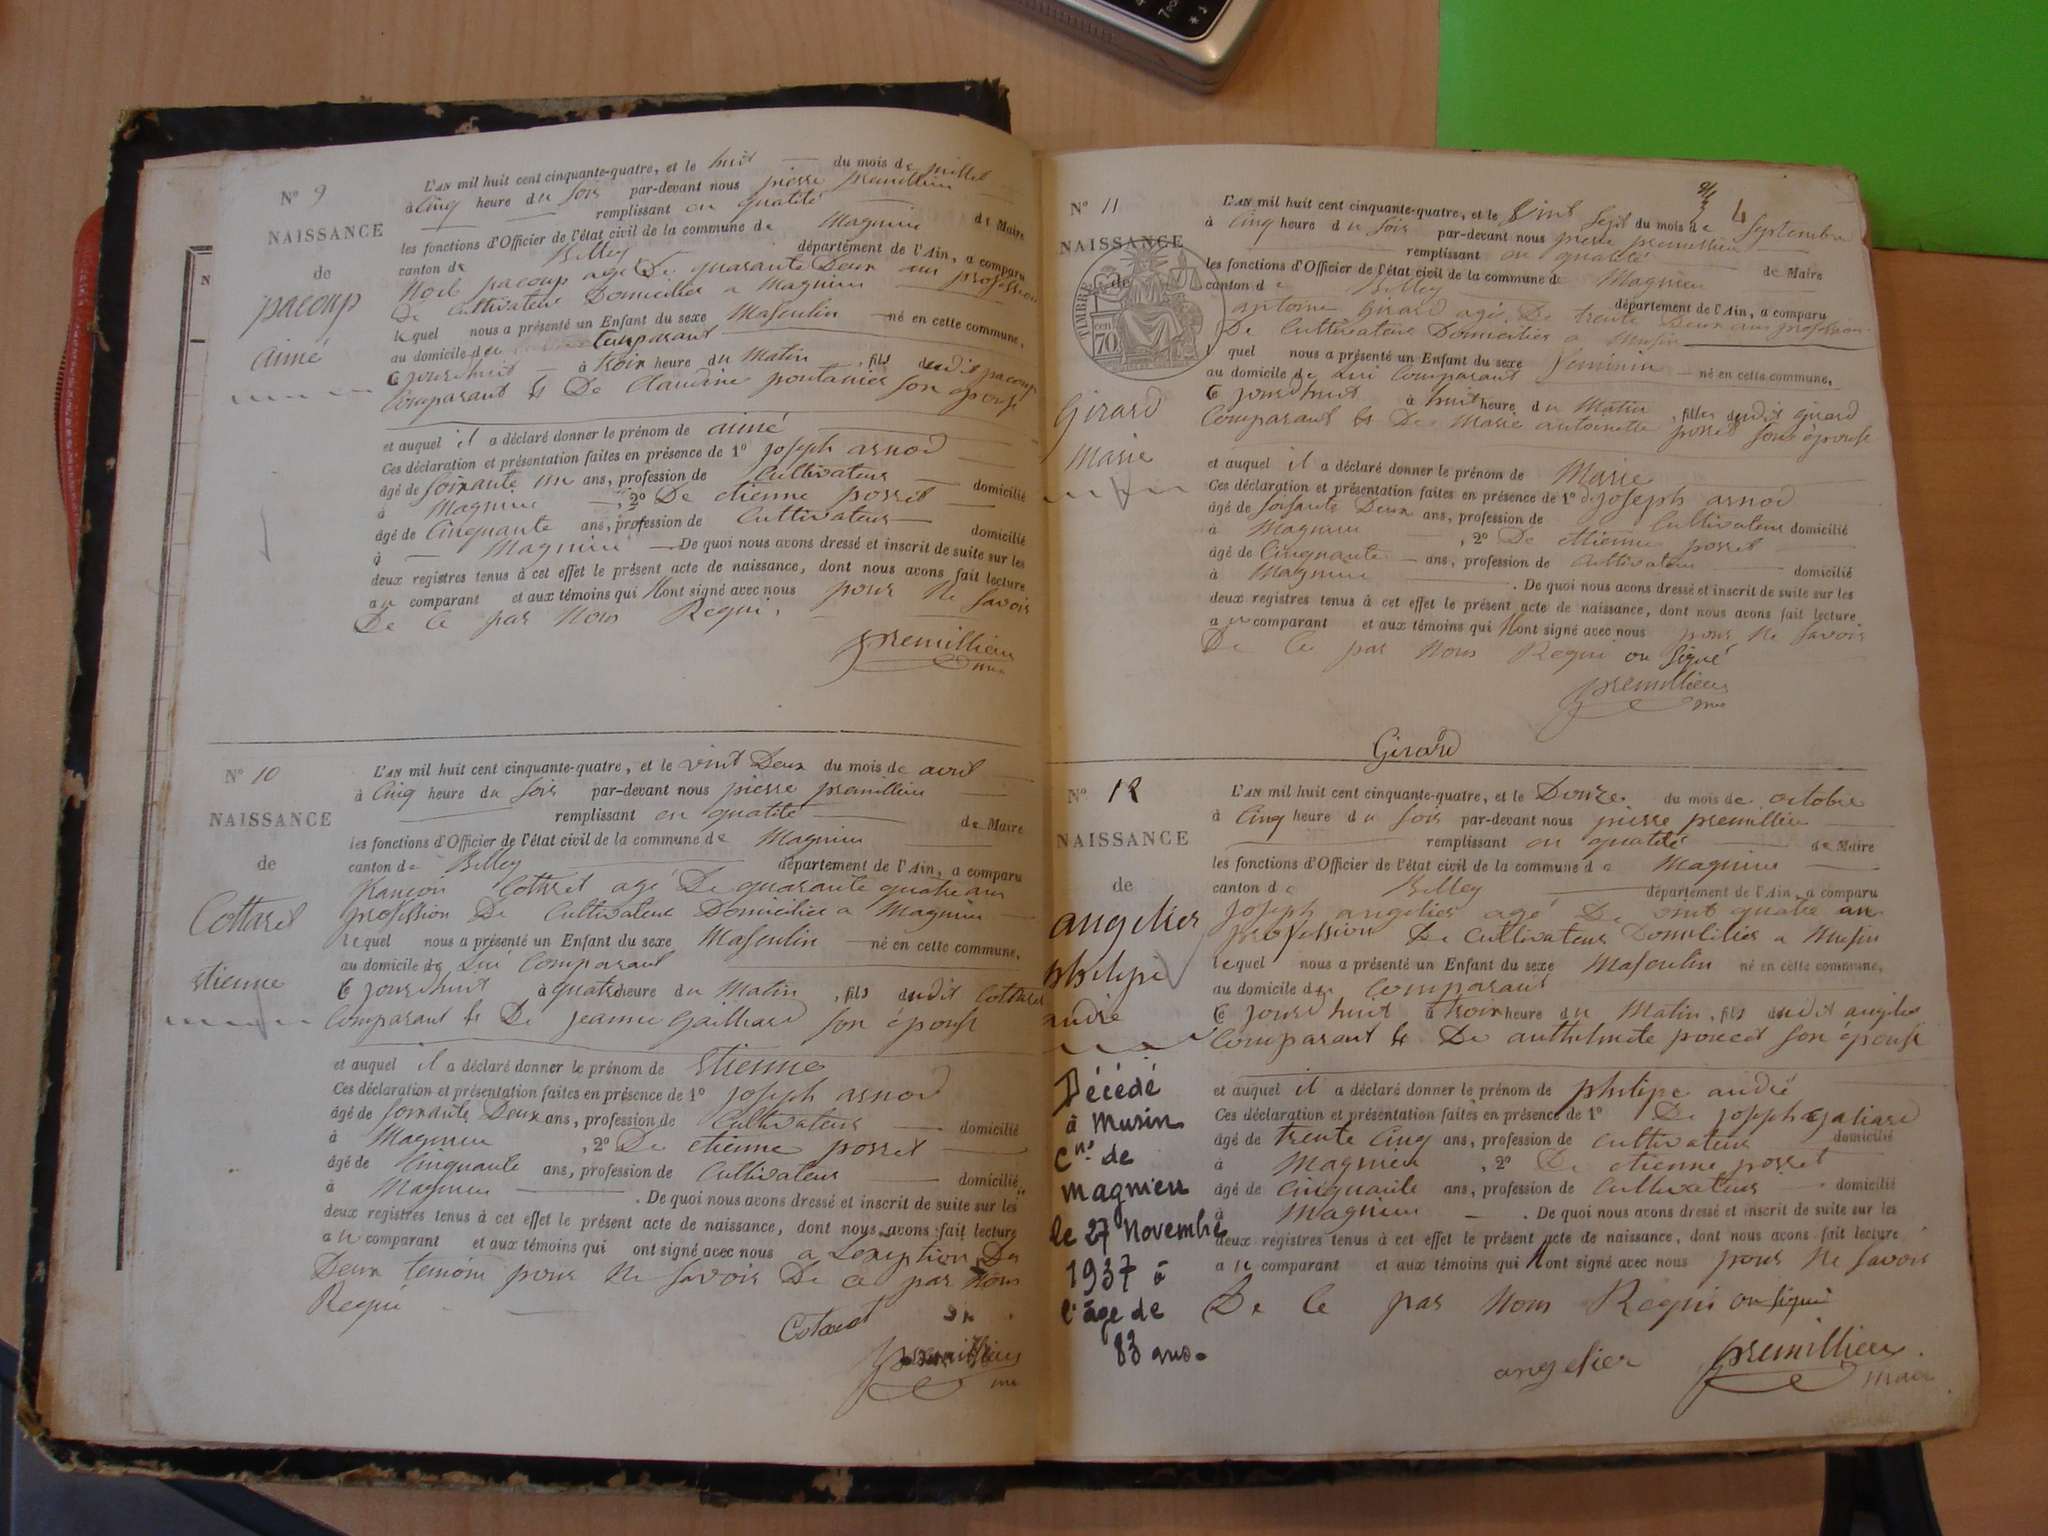 N° 9
NAISSANCE
de
pacoup
aimé
L'AN mil huit cent cinquante-quatre, et le huit du mois de juillet
à Cinq heure du Soir par-devant nous pierre premillieu
remplissant en qualité de Maire
les fonctions d'Officier de l'état civil de la commune de Magnieu
canton de Belley département de l'Ain, a comparu
Noel pacoup agé De quarante Deux ans profession
De Cultivateur Domicilier a Magnieu
lequel nous a présenté un Enfant du sexe Masculin né en cette commune,
au domicile de Comparant
Ce jourd huit à troix heure du Matin, fils dudit pacoup
Comparant & De Claudine pontanier son épouse
et auquel il a déclaré donner le prénom de aimé
Ces déclaration et présentation faites en présence de 1° joseph arnod
âgé de soixante un ans, profession de Cultivateur domicilié
à Magnieu, 2° De etienne posset
âgé de Cinquante ans, profession de Cultivateur domicilié
à Magnieu De quoi nous avons dressé et inscrit de suite sur les
deux registres tenus à cet effet le présent acte de naissance, dont nous avons fait lecture
au comparant et aux témoins qui Nont signé avec nous pour Ne savoir
De Ce par Nous Requi.
premillieu
N° 10
NAISSANCE
de
Cottaret
etienne
L'AN mil huit cent cinquante-quatre, et le vint Deux du mois de avril
à Cinq heure du Soir par-devant nous pierre premillieu
remplissant en qualité de Maire
les fonctions d'Officier de l'état civil de la commune de Magnieu
canton de Belley département de l'Ain, a comparu
Cottret agé De quarante quatre ans
profession De Cultivateur Domicilier a Magnieu
lequel nous a présenté un Enfant du sexe Masculin né en cette commune,
au domicile de Lui Comparant
Ce jourd huit à quatre heure du Matin, fils dudit Cottaret
Comparant & De jeanne gailliard son épouse
et auquel il a déclaré donner le prénom de etienne
Ces déclaration et présentation faites en présence de 1° joseph arnod
âgé de soixante Deux ans, profession de Cultivateur domicilié
à Magnieu, 2° De etienne posset
âgé de Cinquante ans, profession de Cultivateur domicilié
à Magnieu. De quoi nous avons dressé et inscrit de suite sur les
deux registres tenus à cet effet le présent acte de naissance, dont nous avons fait lecture
au comparant et aux témoins qui ont signé avec nous a Lexeption Des
Deux temoin pour Ne savoir De Ce par Nous
Requi
Cotaret
premillieu
4
N° 11
NAISSANCE
de
TIMBRE
70
Girard
Marie
L'AN mil huit cent cinquante-quatre, et le vint Sept du mois de Septembre
à Cinq heure du Soir par-devant nous pierre premillieu
remplissant en qualité de Maire
les fonctions d'Officier de l'état civil de la commune de Magnieu
canton de Belley département de l'Ain, a comparu
antoine Girard agé De trente Deux ans profession
De Cultivateur Domicilier a Musin
lequel nous a présenté un Enfant du sexe féminin né en cette commune,
au domicile de Lui Comparant
Ce jourd huit à huit heure du Matin, fille dudit girard
Comparant & De Marie antoinette posset sont épouse
et auquel il a déclaré donner le prénom de Marie
Ces déclaration et présentation faites en présence de 1° de joseph arnod
âgé de soisante Deux ans, profession de Cultivateur domicilié
à Magnieu, 2° De ettienne posset
âgé de Cinquante ans, profession de Cultivateur domicilié
à Magnieu. De quoi nous avons dressé et inscrit de suite sur les
deux registres tenus à cet effet le présent acte de naissance, dont nous avons fait lecture
au comparant et aux témoins qui Nont signé avec nous pour Ne savoir
De Ce par Nous Requi on signé
premillieu
Girard
N° 12
NAISSANCE
de
angelier
philipe
andré
Décédé
à Musin
Cne de
Magnieu
le 27 Novembre
1937 à
l'âge de
83 ans.
L'AN mil huit cent cinquante-quatre, et le Douze du mois de octobre
à Cinq heure du Soir par-devant nous pierre premillieu
remplissant en qualité de Maire
les fonctions d'Officier de l'état civil de la commune de Magnieu
canton de Belley département de l'Ain, a comparu
joseph angelier agé De vint quatre an
profession De Cultivateur Domicilier a Musin
lequel nous a présenté un Enfant du sexe Masculin né en cette commune,
au domicile du comparant
Ce jourd huit à troix heure du Matin, fils dudit angelier
Comparant & De anthelmete poncet son épouse
et auquel il a déclaré donner le prénom de philipe andré
Ces déclaration et présentation faites en présence de 1° De joseph galiard
âgé de trente Cinq ans, profession de Cultivateur domicilié
à Magnieu, 2° De etienne posset
âgé de Cinquante ans, profession de Cultivateur domicilié
à Magnieu. De quoi nous avons dressé et inscrit de suite sur les
deux registres tenus à cet effet le présent acte de naissance, dont nous avons fait lecture
au comparant et aux témoins qui Nont signé avec nous pour Ne savoir
De Ce par Nous Requi on signé
angelier premillieu
maire